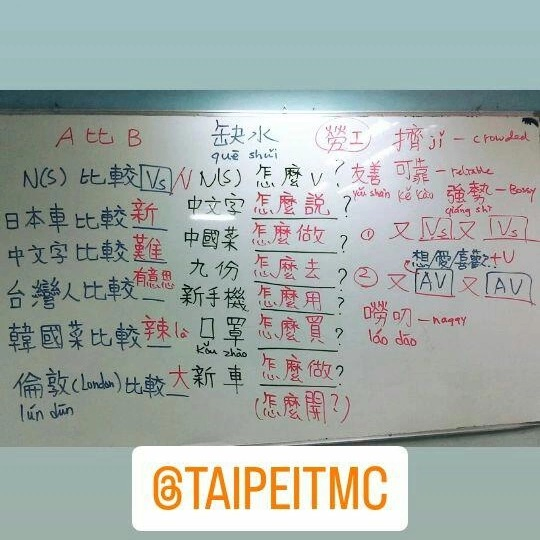 A 比 B
N(S) 比較 Vs / N
日本車比較新
中文字比較難
台灣人比較有意思
韓國菜比較辣 là
倫敦(London)比較大
lún dūn
缺水
quē shuǐ
N(S) 怎麼 V?
中文字 怎麼說?
中國菜 怎麼做?
九份 怎麼去?
新手機 怎麼用?
口罩 怎麼買?
kǒu zhào
新車 怎麼做?
(怎麼開?)
勞工 擠 jǐ - crowded
友善 可靠 - reliable
yǒu shàn kě kào 強勢 - Bossy
qiáng shì
① 又 Vs 又 Vs
想,愛,喜歡?+V
② 又 AV 又 AV
嘮叨 - naggy
láo dāo
@TAIPEITMC